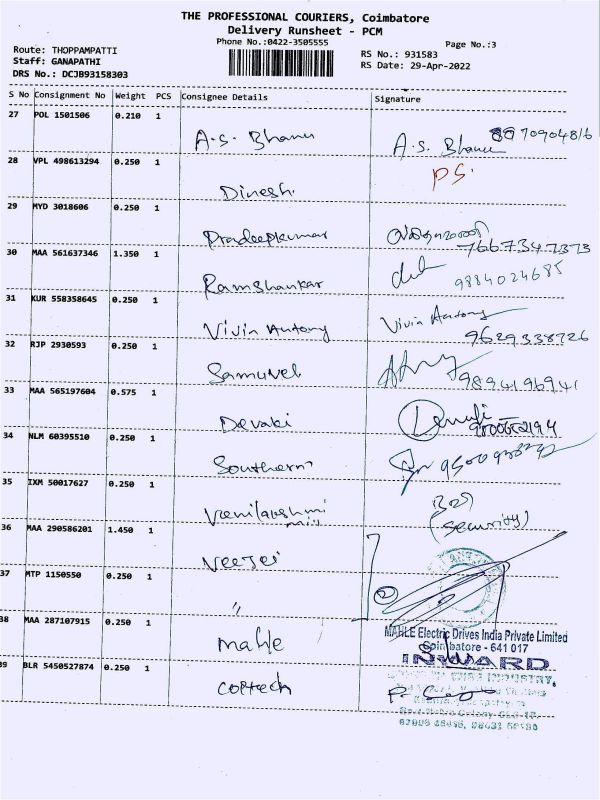 THE PROFESSIONAL COURIERS, Coimbatore
Delivery Runsheet - PCM
Phone No.:0422-3505555
Page No.:3
Route: THOPPAMPATTI
Staff: GANAPATHI
DRS No.: DCJB93158303
RS No.: 931583
RS Date: 29-Apr-2022
S No Consignment No Weight PCS Consignee Details Signature
27 POL 1501506 0.210 1
A.S. Bhanu A.S. Bhanu 70904816
28 VPL 498613294 0.250 1
Dinesh P.S.
29 MYD 3018606 0.250 1
Pradeepkumar 7667347373
30 MAA 561637346 1.350 1
Ramshankar 9884024685
31 KUR 558358645 0.250 1
Vivin Antony Vivin Antony
9629338726
32 RJP 2930593 0.250 1
Samuvel 9894196941
33 MAA 565197604 0.575 1
Devaki
34 NLM 60395510 0.250 1
Southern
35 IXM 50017627 0.250 1
(Security)
36 MAA 290586201 1.450 1
Veejei
37 MTP 1150550 0.250 1
"
38 MAA 287107915 0.250 1
Mahle
MAHLE Electric Drives India Private Limited
Coimbatore - 641 017
INWARD
39 BLR 5450527874 0.250 1
Coptech